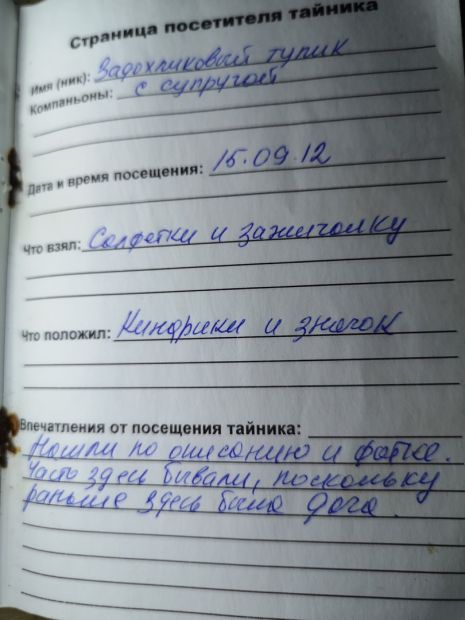 Страница посетителя тайника
Имя (ник): Задохликовый тупик
Компаньоны: с супругой
Дата и время посещения: 15.09.12
Что взял: Салфетки и зажигалку
Что положил: Киндрики и значок
Впечатления от посещения тайника:
Нашли по описанию и фотке.
Часто здесь бывали, поскольку
раньше здесь была дача.